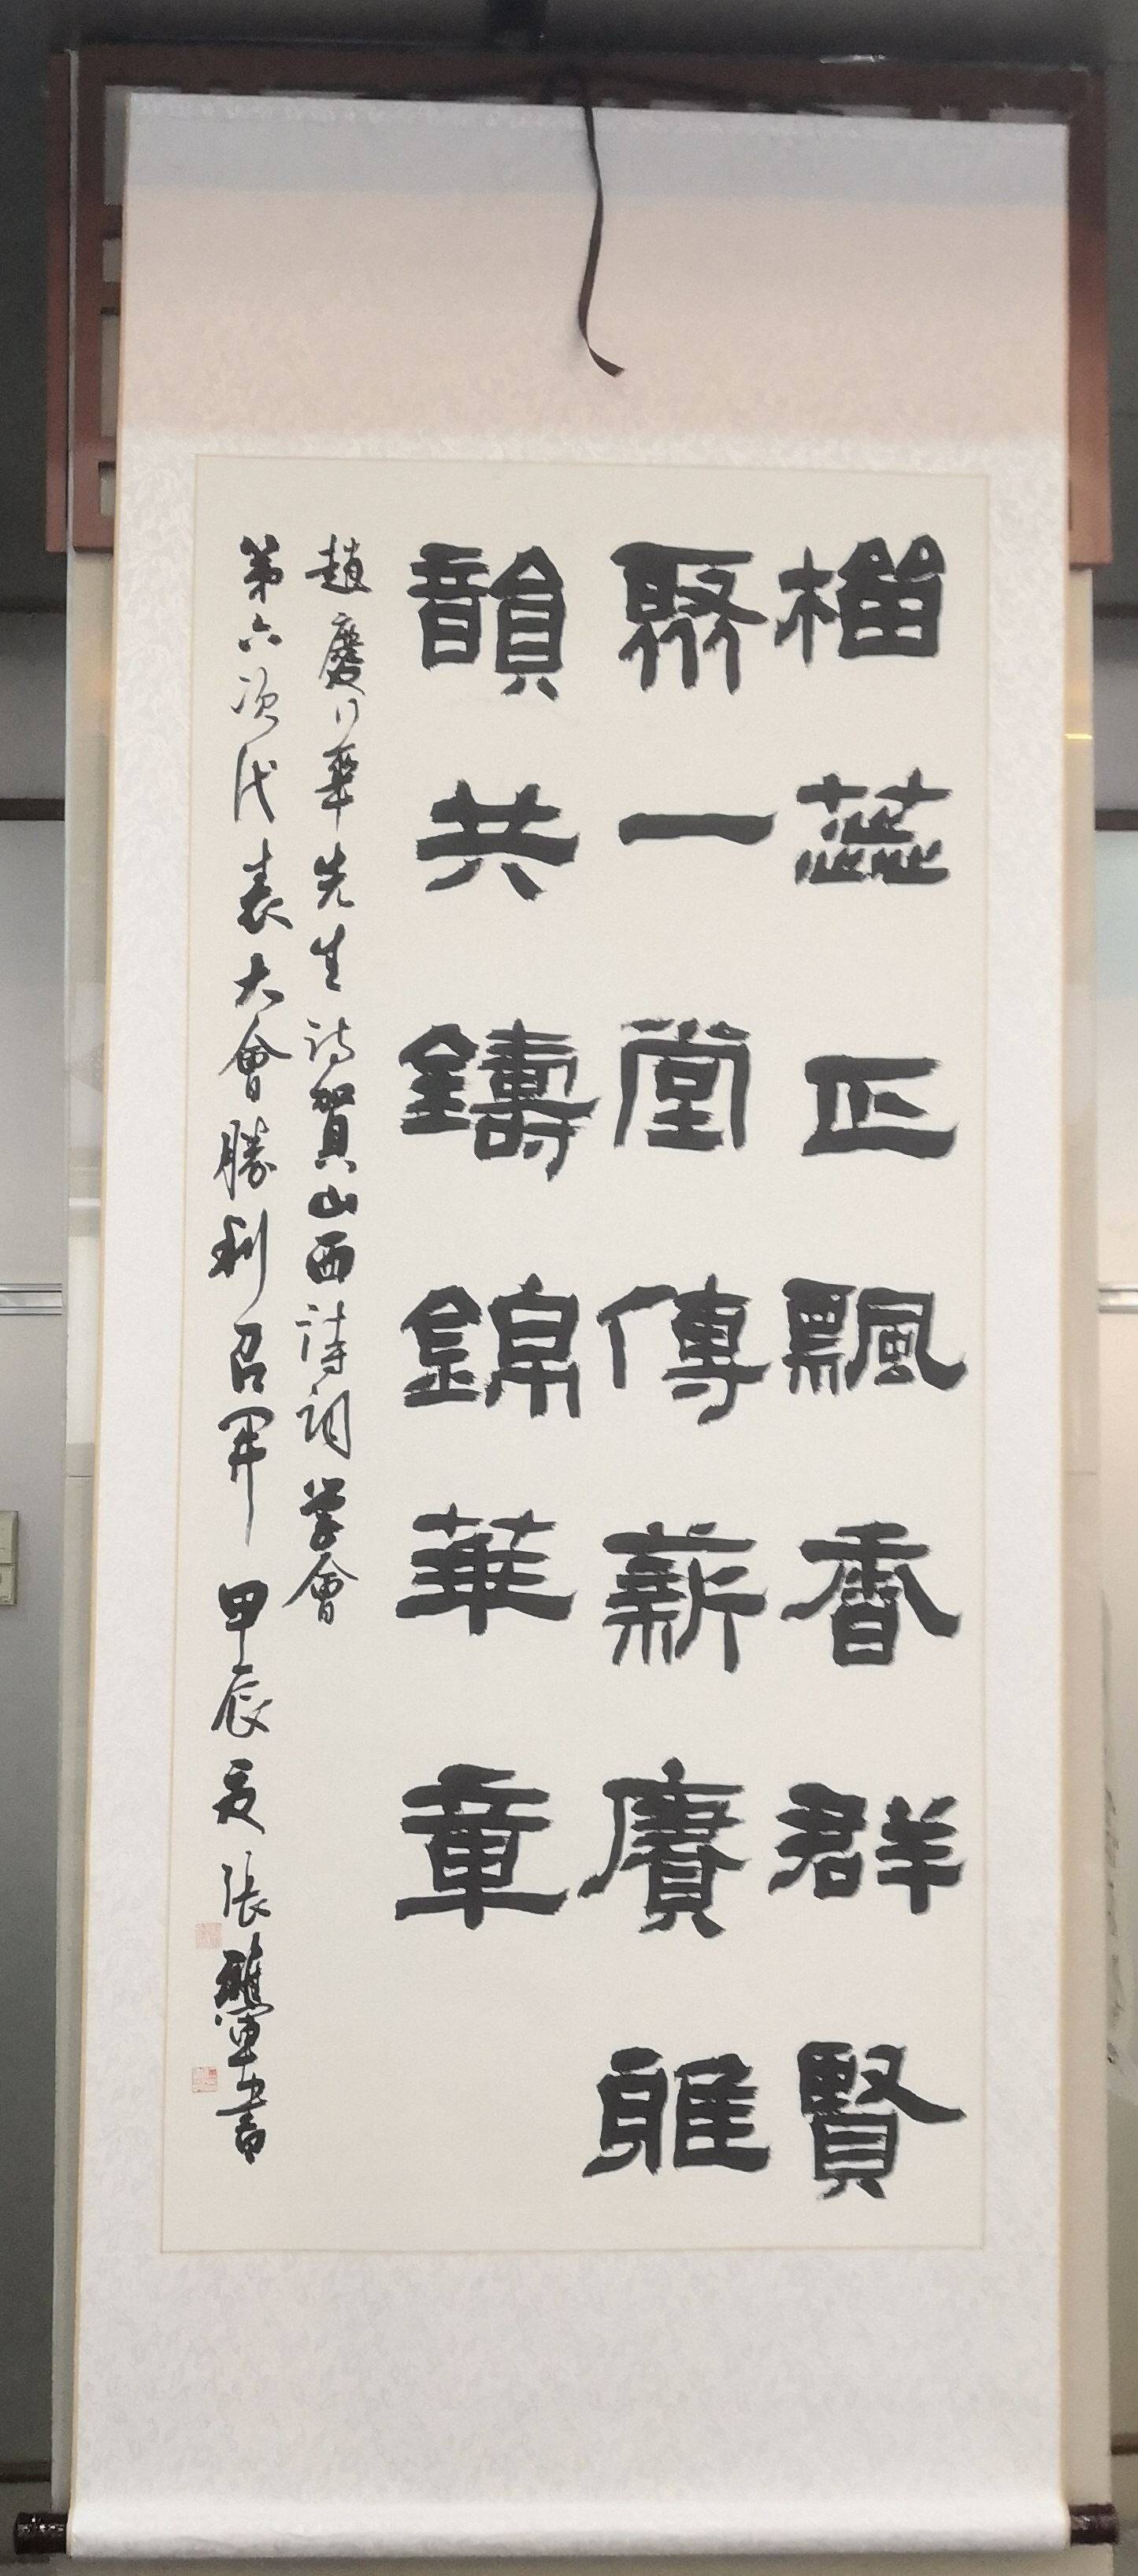 榴蕊正飄香群賢
聚一堂傳薪賡雅
韻共鑄錦華章
趙慶華先生詩賀山西詩詞學會
第六次代表大會勝利召開 甲辰夏 張書